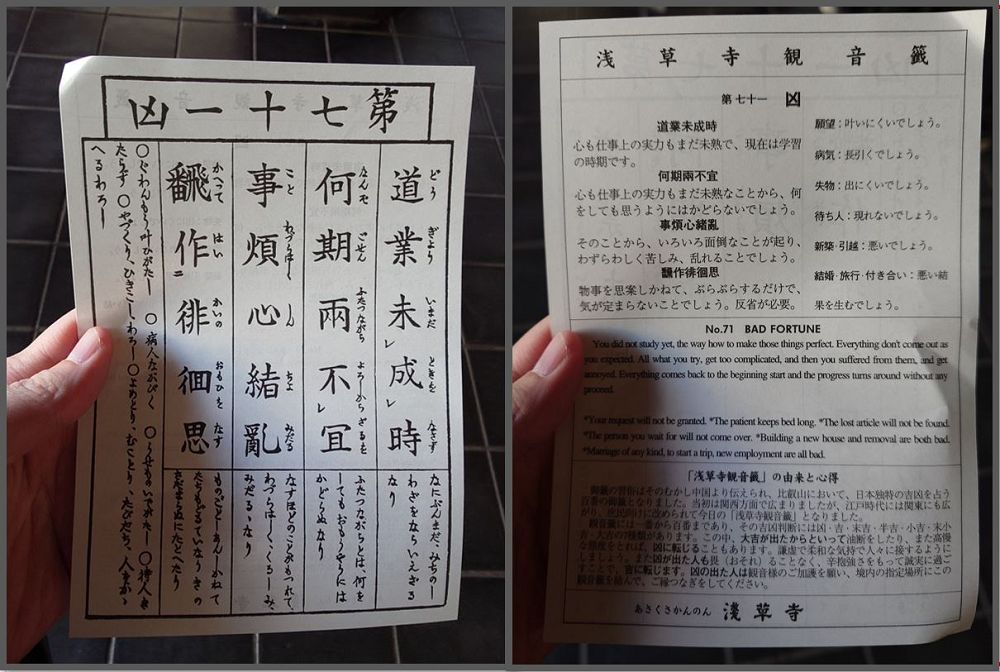 第七十一凶
道業未成時
どう ぎよう いまだ ときを なさず
なにぶんまだ、みちの
わざをならいえざる
なり
何期兩不宜
なんぞ ごせん ふたつながら よろしからざるを
ふたつながらとは、何を
してもおもうやうには
かどらぬなり
事煩心緒亂
こと わづらはしく しん ちよ みだる
なすほどのことみもつれて、
わづらはしく、くるしみ、
みだるゝなり
飜作徘徊思
かへつて はい かいの おもひを なす
ものごとしあんしかねて
たちもどるていなりきの
さだまらぬにたとへたり
〇ぐわんもう叶ひがたし 〇病人ながびく 〇うせものいでがたし 〇待人き
たらず 〇やづくり、ひきこし、わろし 〇よめとり、むことり、たびだち、人をかゝ
へるわろし
浅草寺観音籤
第七十一 凶
道業未成時
心も仕事上の実力もまだ未熟で、現在は学習
の時期です。
何期兩不宜
心も仕事上の実力もまだ未熟なことから、何
をしても思うようにはかどらないでしょう。
事煩心緒亂
そのことから、いろいろ面倒なことが起り、
わずらわしく苦しみ、乱れることでしょう。
飜作徘徊思
物事を思案しかねて、ぶらぶらするだけで、
気が定まらないことでしょう。反省が必要。
願望：叶いにくいでしょう。
病気：長引くでしょう。
失物：出にくいでしょう。
待ち人：現れないでしょう。
新築・引越：悪いでしょう。
結婚・旅行・付き合い：悪い結
果を生むでしょう。
No.71 BAD FORTUNE
You did not study yet, the way how to make those things perfect. Everything don't come out as
you expected. All what you try, get too complicated, and then you suffered from them, and get
annoyed. Everything comes back to the beginning start and the progress turns around without any
proceed.
*Your request will not be granted. *The patient keeps bed long. *The lost article will not be found.
*The person you wait for will not come over. *Building a new house and removal are both bad.
*Marriage of any kind, to start a trip, new employment are all bad.
「浅草寺観音籤」の由来と心得
御籤の習俗はそのむかし中国より伝えられ、比叡山において、日本独特の吉凶を占う
百番の御籤となりました。当初は関西方面で広まりましたが、江戸時代には関東にも広
がり、庶民向けに改められて今日の「浅草寺観音籤」となりました。
観音籤には一番から百番まであり、その吉凶判断には凶・吉・末吉・半吉・小吉・末小
吉・大吉の7種類があります。この中、大吉が出たからといって油断をしたり、また高慢
な態度をとれば、凶に転じることもあります。謙虚で柔和な気持で人々に接するようにし
ましょう。また凶が出た人も畏（おそ）れることなく、辛抱強さをもって誠実に過ご
すことで、吉に転じます。凶の出た人は観音様のご加護を願い、境内の指定場所にこの
観音籤を結んで、ご縁つなぎをしてください。
あさくさかんのん 浅草寺